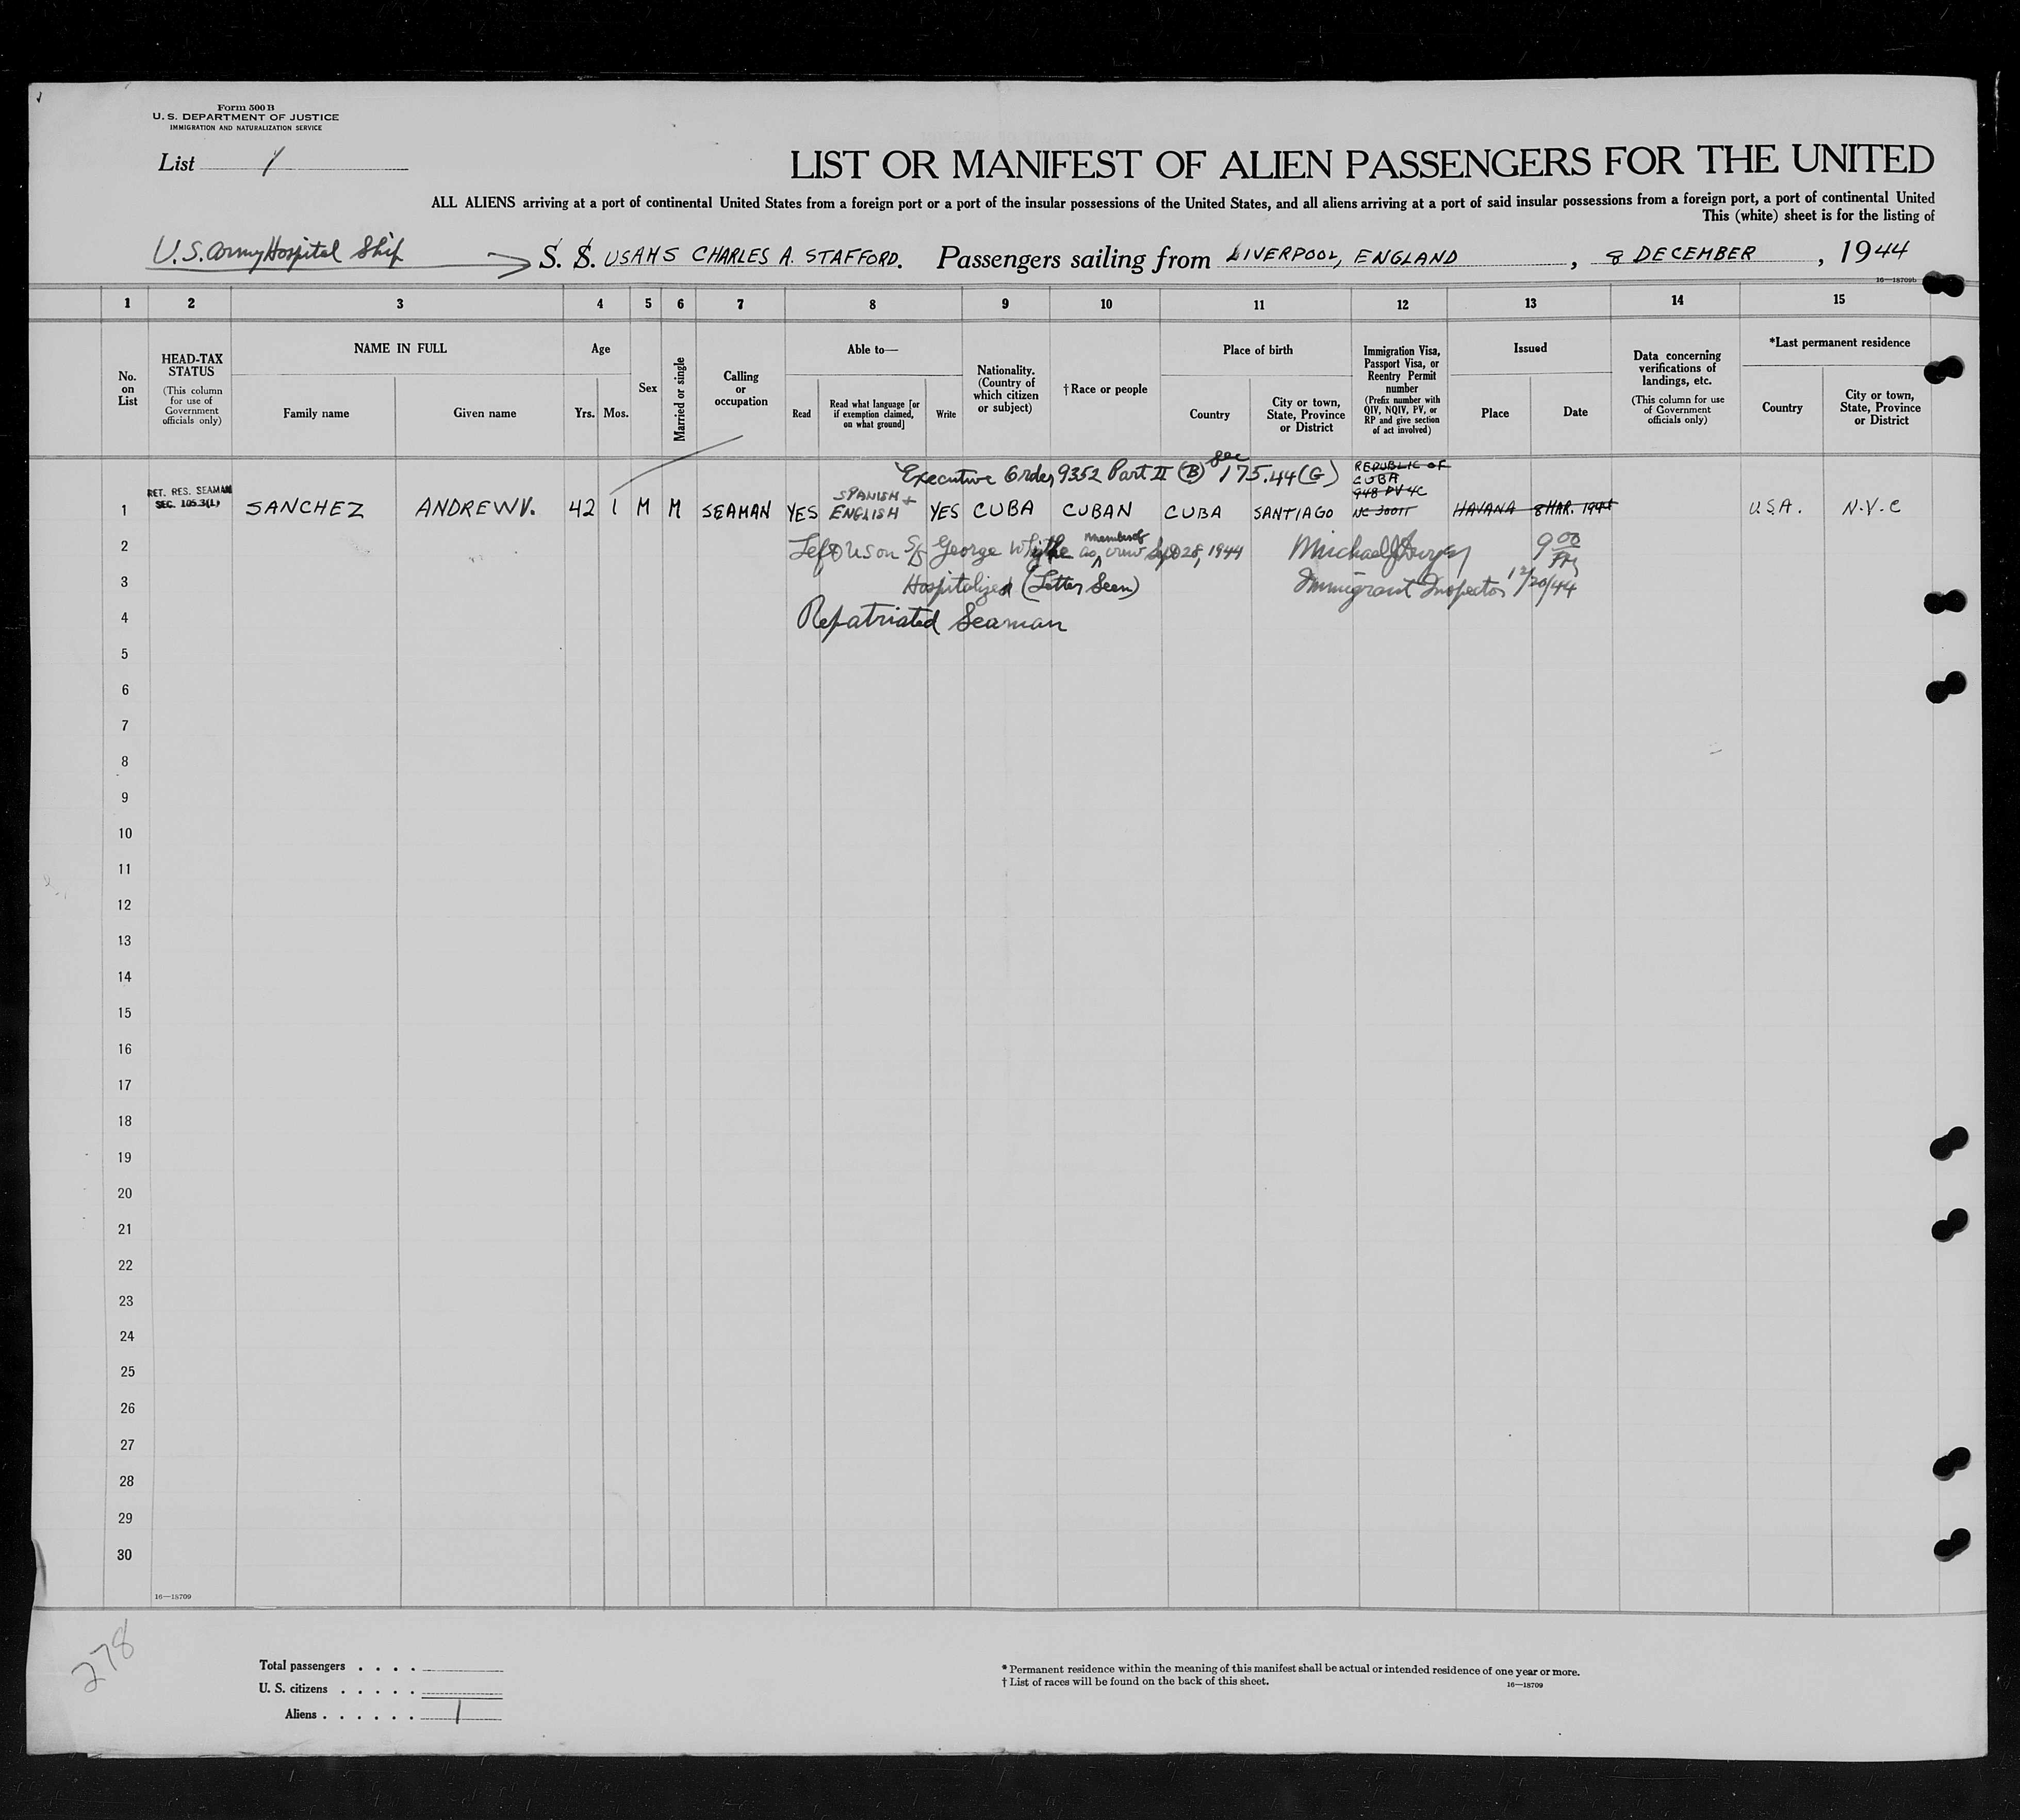 Form 500 B
U. S. DEPARTMENT OF JUSTICE
IMMIGRATION AND NATURALIZATION SERVICE
List 1
LIST OR MANIFEST OF ALIEN PASSENGERS FOR THE UNITED
ALL ALIENS arriving at a port of continental United States from a foreign port or a port of the insular possessions of the United States, and all aliens arriving at a port of said insular possessions from a foreign port, a port of continental United
This (white) sheet is for the listing of
U.S. Army Hospital Ship S. S. USAHS CHARLES A. STAFFORD. Passengers sailing from LIVERPOOL, ENGLAND, 8 DECEMBER, 1944
16—18709b
1 2 3 4 5 6 7 8 9 10 11 12 13 14 15
No. on List
HEAD-TAX STATUS
(This column for use of Government officials only)
NAME IN FULL
Family name
Given name
Age
Yrs.
Mos.
Sex
Married or single
Calling or occupation
Able to—
Read
Read what language [or if exemption claimed, on what ground]
Write
Nationality. (Country of which citizen or subject)
†Race or people
Place of birth
Country
City or town, State, Province or District
Immigration Visa, Passport Visa, or Reentry Permit number
(Prefix number with QIV, NQIV, PV, or RP and give section of act involved)
Issued
Place
Date
Data concerning verifications of landings, etc.
(This column for use of Government officials only)
*Last permanent residence
Country
City or town, State, Province or District
Executive Order 9352 Part II (B) Sec 175.44(G)
REPUBLIC OF
CUBA
948 PV 4C
RET. RES. SEAMAN
SEC. 105.3(1)
1 SANCHEZ ANDREW V. 42 1 M M SEAMAN YES SPANISH + ENGLISH YES CUBA CUBAN CUBA SANTIAGO HAVANA 8 MAR. U.S.A. N.Y.C
2 Left U S on S/S George Wythe as member of crew Sept 28, 1944 Michael J 9 00
3 Hospitalized (Letter Seen) Immigrant Inspector 12/20/44
4 Repatriated Seaman
5
6
7
8
9
10
11
12
13
14
15
16
17
18
19
20
21
22
23
24
25
26
27
28
29
30
16—18709
278
Total passengers . . . .
U. S. citizens . . . . .
Aliens . . . . . . 1
* Permanent residence within the meaning of this manifest shall be actual or intended residence of one year or more.
† List of races will be found on the back of this sheet.
16—18709